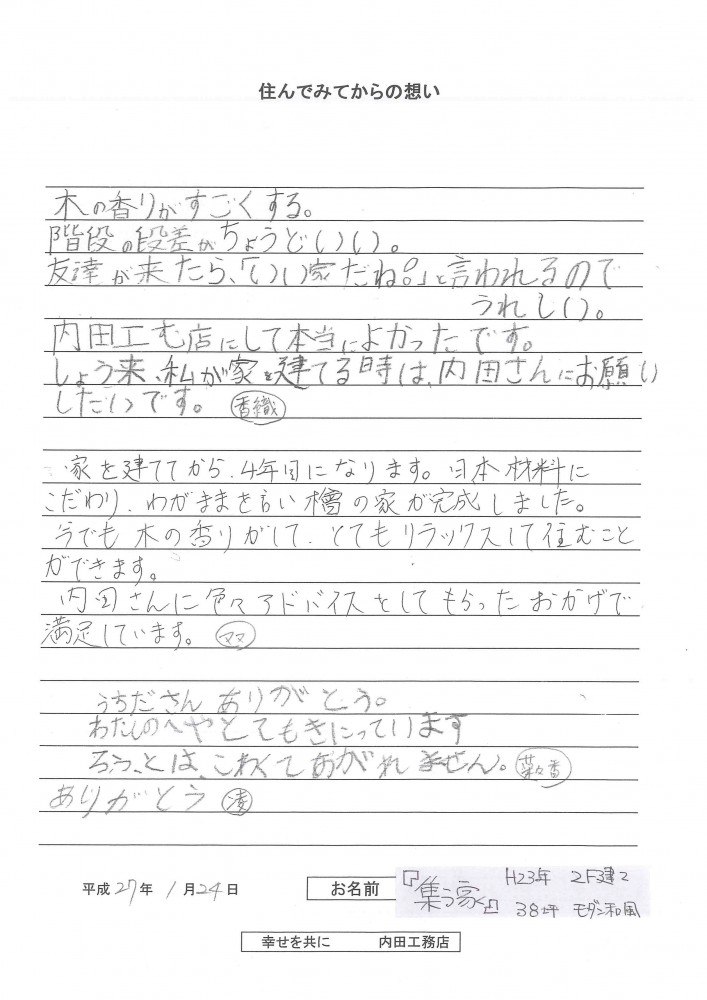 住んでみてからの想い
木の香りがすごくする。
階段の段差がちょうどいい。
友達が来たら、「いい家だね!」と言われるので
うれしい。
内田工む店にして本当によかったです。
しょう来、私が家を建てる時は、内田さんにお願い
したいです。 香織
家を建ててから、4年目になります。日本材料に
こだわり、わがままをいい檜の家が完成しました。
今でも木の香りがして、とてもリラックスして住むこと
ができます。
内田さんに色々アドバイスをしてもらったおかげで
満足しています。 ママ
うちださん ありがとう。
わたしのへやとてもきにっています
ろふとは、こわくてあがれません。 菜々香
ありがとう 凌
平成27年 1月24日 お名前 『集う家』 H23年 2F建て
38坪 モダン和風
幸せを共に 内田工務店